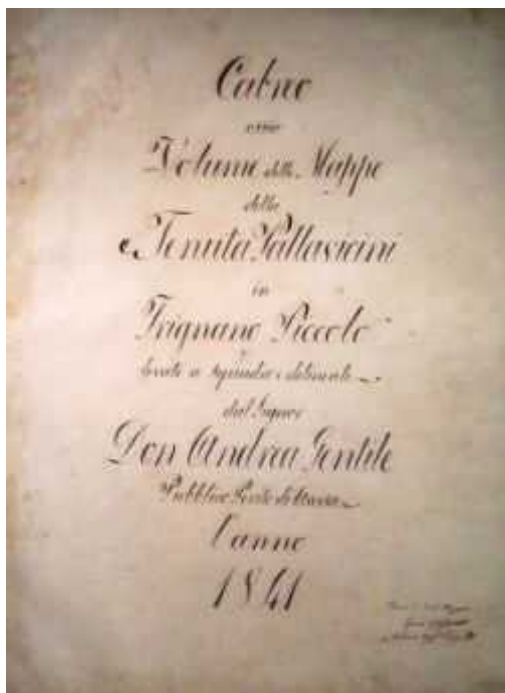 Cabreo
ossia
Volume delle Mappe
della
Tenuta Pallavicini
in
Trignano Piccolo
levate a squadro e delineate
dal Signor
Don Andrea Gentile
Pubblico Perito di
l'anno
1841